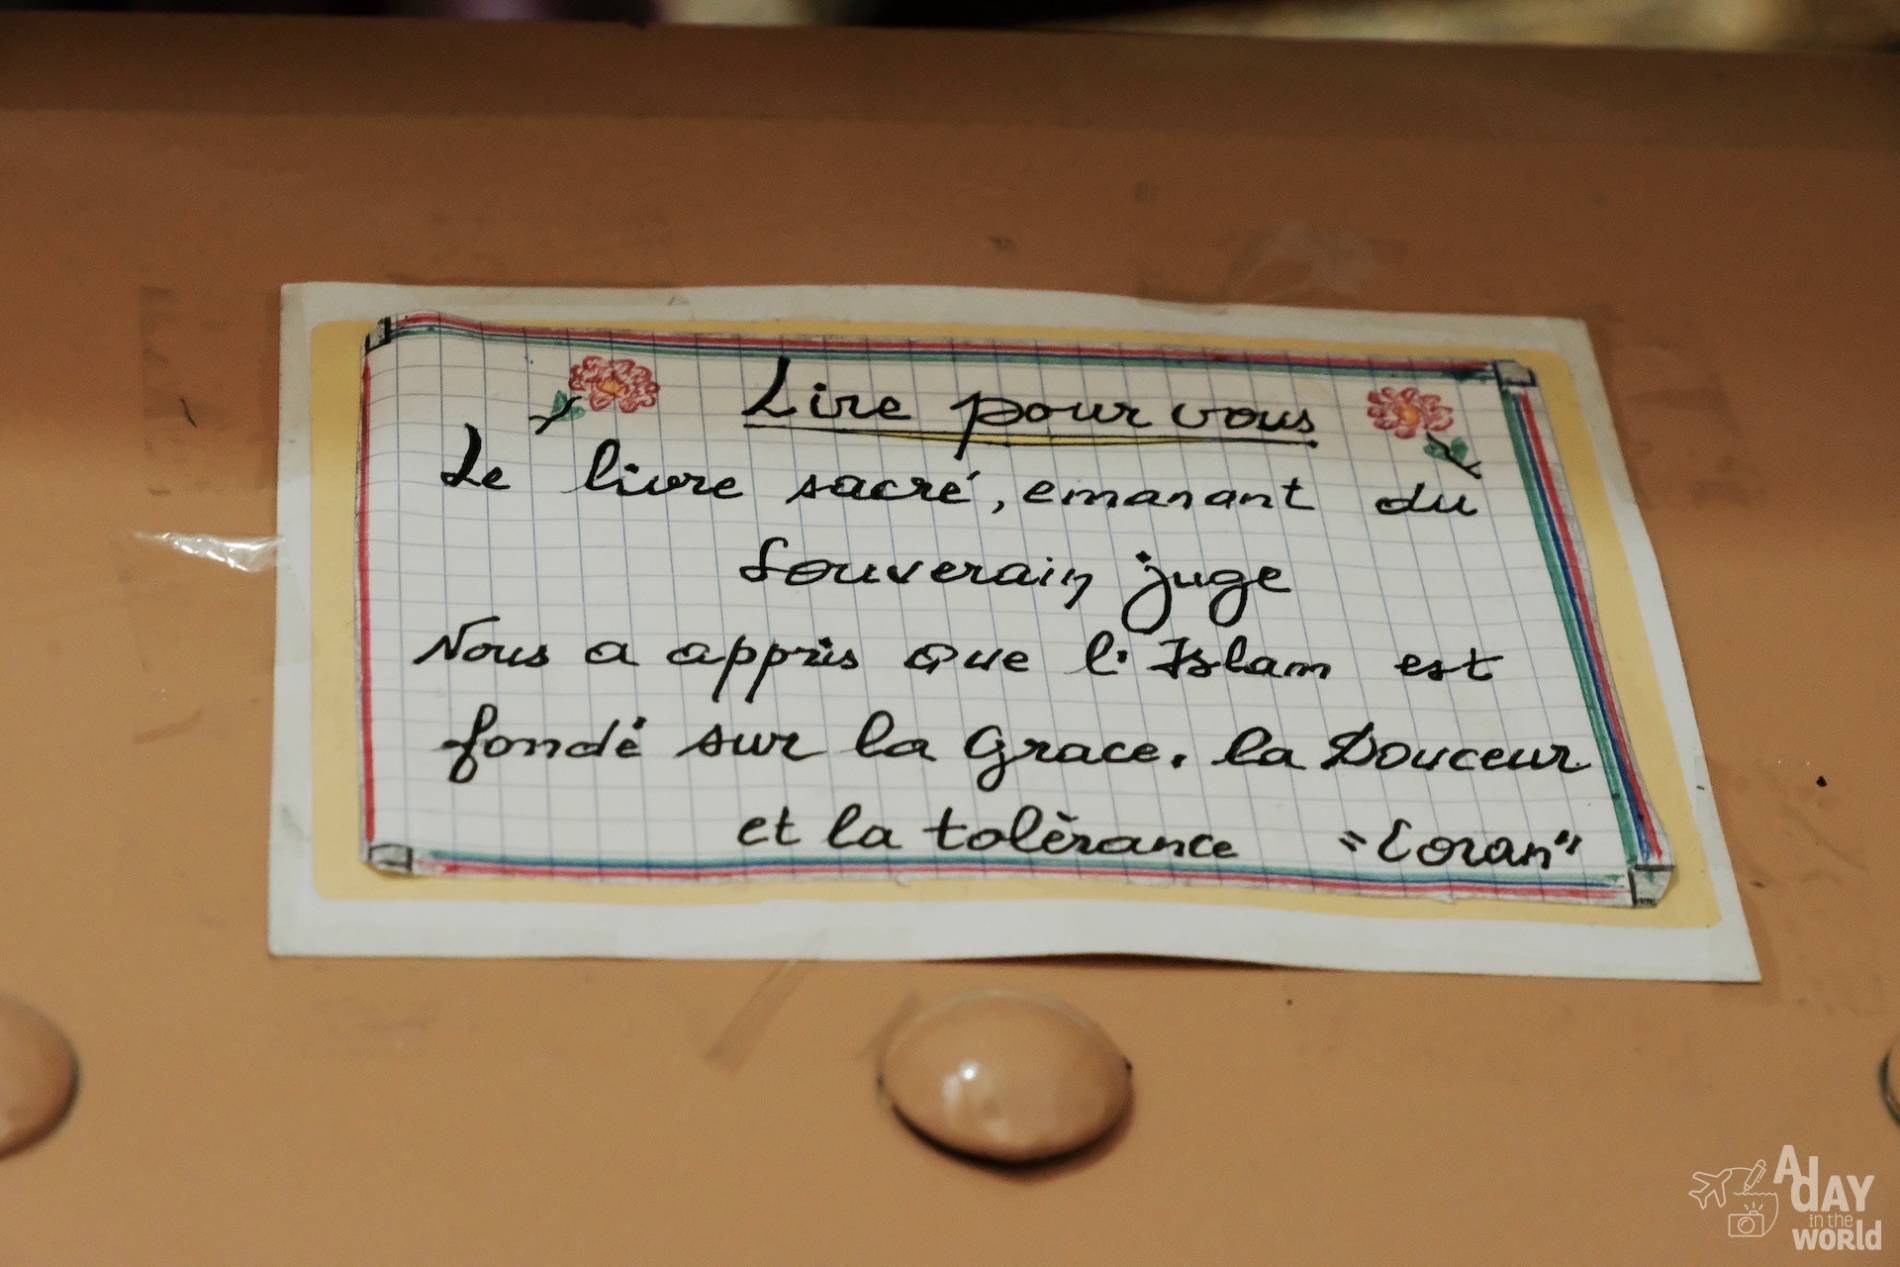 Lire pour vous
Le livre sacré, emanant du
Souverain juge
Nous a appris que l'Islam est
fondé sur la Grace. la Douceur
et la tolèrance "Coran"
A dAY
in the
WORld